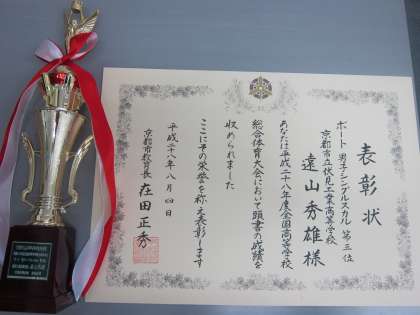 表彰状
ボート 男子シングルスカル 第三位
京都市立伏見工業高等学校
遠山秀雄様
あなたは平成二十八年度全国高等学校
総合体育大会において頭書の成績を
収められました
ここにその栄誉を称え表彰します
平成二十八年八月四日
京都市教育長 在田正秀